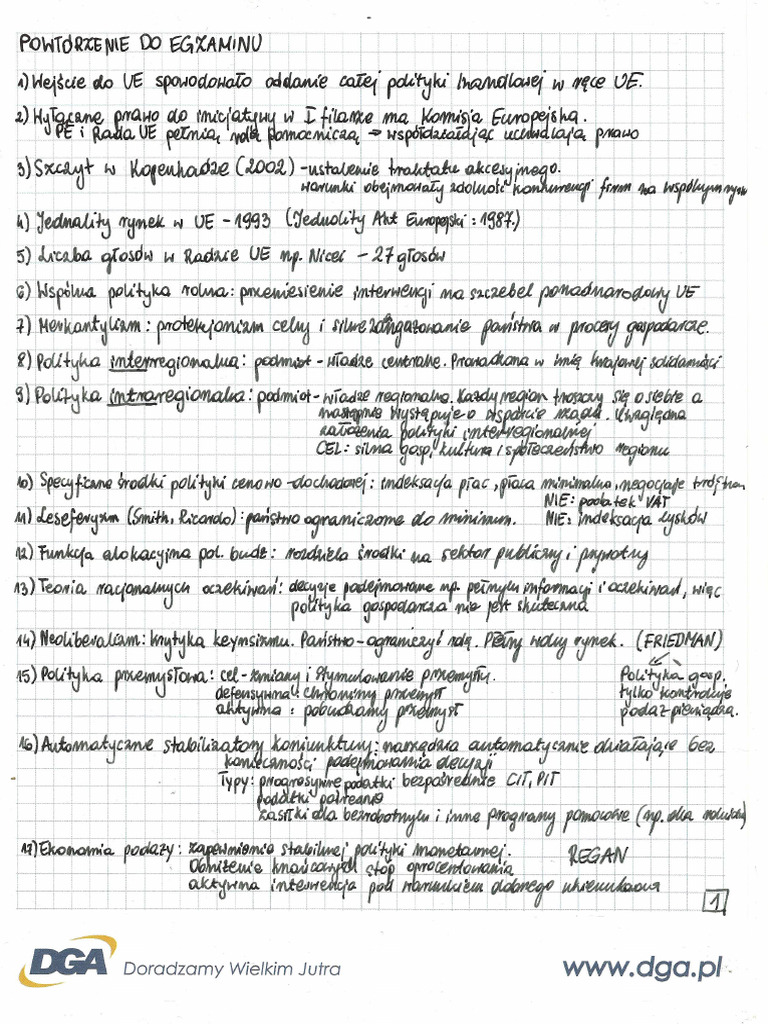 POWTÓRZENIE DO EGZAMINU
1) Wejście do UE spowodowało oddanie całej polityki handlowej w ręce UE.
2) Wyłączne prawo do inicjatywy w I filarze ma Komisja Europejska.
PE i Rada UE pełnią rolę pomocniczą → współdziałając uchwalają prawo
3) Szczyt w Kopenhadze (2002) - ustalenie traktatu akcesyjnego.
warunki obejmowały zdolność konkurencji firm na wspólnym rynku
4) Jednolity rynek w UE - 1993 (Jednolity Akt Europejski : 1987.)
5) Liczba głosów w Radzie UE np. Nicei - 27 głosów
6) Wspólna polityka rolna : przeniesienie interwencji na szczebel ponadnarodowy UE
7) Merkantylizm : protekcjonizm celny i silne zaangażowanie państwa w procesy gospodarcze.
8) Polityka interregionalna : podmiot - władze centralne. Prowadzona w imię krajowej solidarności
9) Polityka intraregionalna : podmiot - władze regionalne. Każdy region troszczy się o siebie a
następnie występuje o wsparcie rządu. Uwzględnia
założenia polityki interregionalnej
CEL : silna gosp, kultura i społeczeństwo regionu
10) Specyficzne środki polityki cenowo - dochodowej : indeksacja płac, płaca minimalna, negocjacje trójstron
NIE: podatek VAT
11) Leseferyzm (Smith, Ricardo) : państwo ograniczone do minimum. NIE: indeksacja zysków
12) Funkcja alokacyjna pol. budż : rozdziela środki na sektor publiczny i prywatny
13) Teoria racjonalnych oczekiwań : decyzje podejmowane np. pełnych informacji i oczekiwań, więc
polityka gospodarcza nie jest skuteczna
14) Neoliberalizm : krytyka keynsizmu. Państwo - ograniczyć rolę. Pełny wolny rynek. (FRIEDMAN)
15) Polityka przemysłowa : cel - zmiany i stymulowanie przemysłu. Polityka gosp.
defensywna : chronimy przemysł tylko kontroluje
aktywna : pobudzamy przemysł podaż pieniądza.
16) Automatyczne stabilizatory koniunktury : narzędzia automatycznie działające bez
konieczności podejmowania decyzji
Typy : progresywne podatki bezpośrednie CIT, PIT
podatki pośrednie
zasiłki dla bezrobotnych i inne programy pomocowe (np. dla rolników)
17) Ekonomia podaży : zapewnienie stabilnej polityki monetarnej. REGAN
Obniżenie krańcowych stóp oprocentowania
aktywna interwencja pod warunkiem dobrego ukierunkowa
1
DGA Doradzamy Wielkim Jutra www.dga.pl